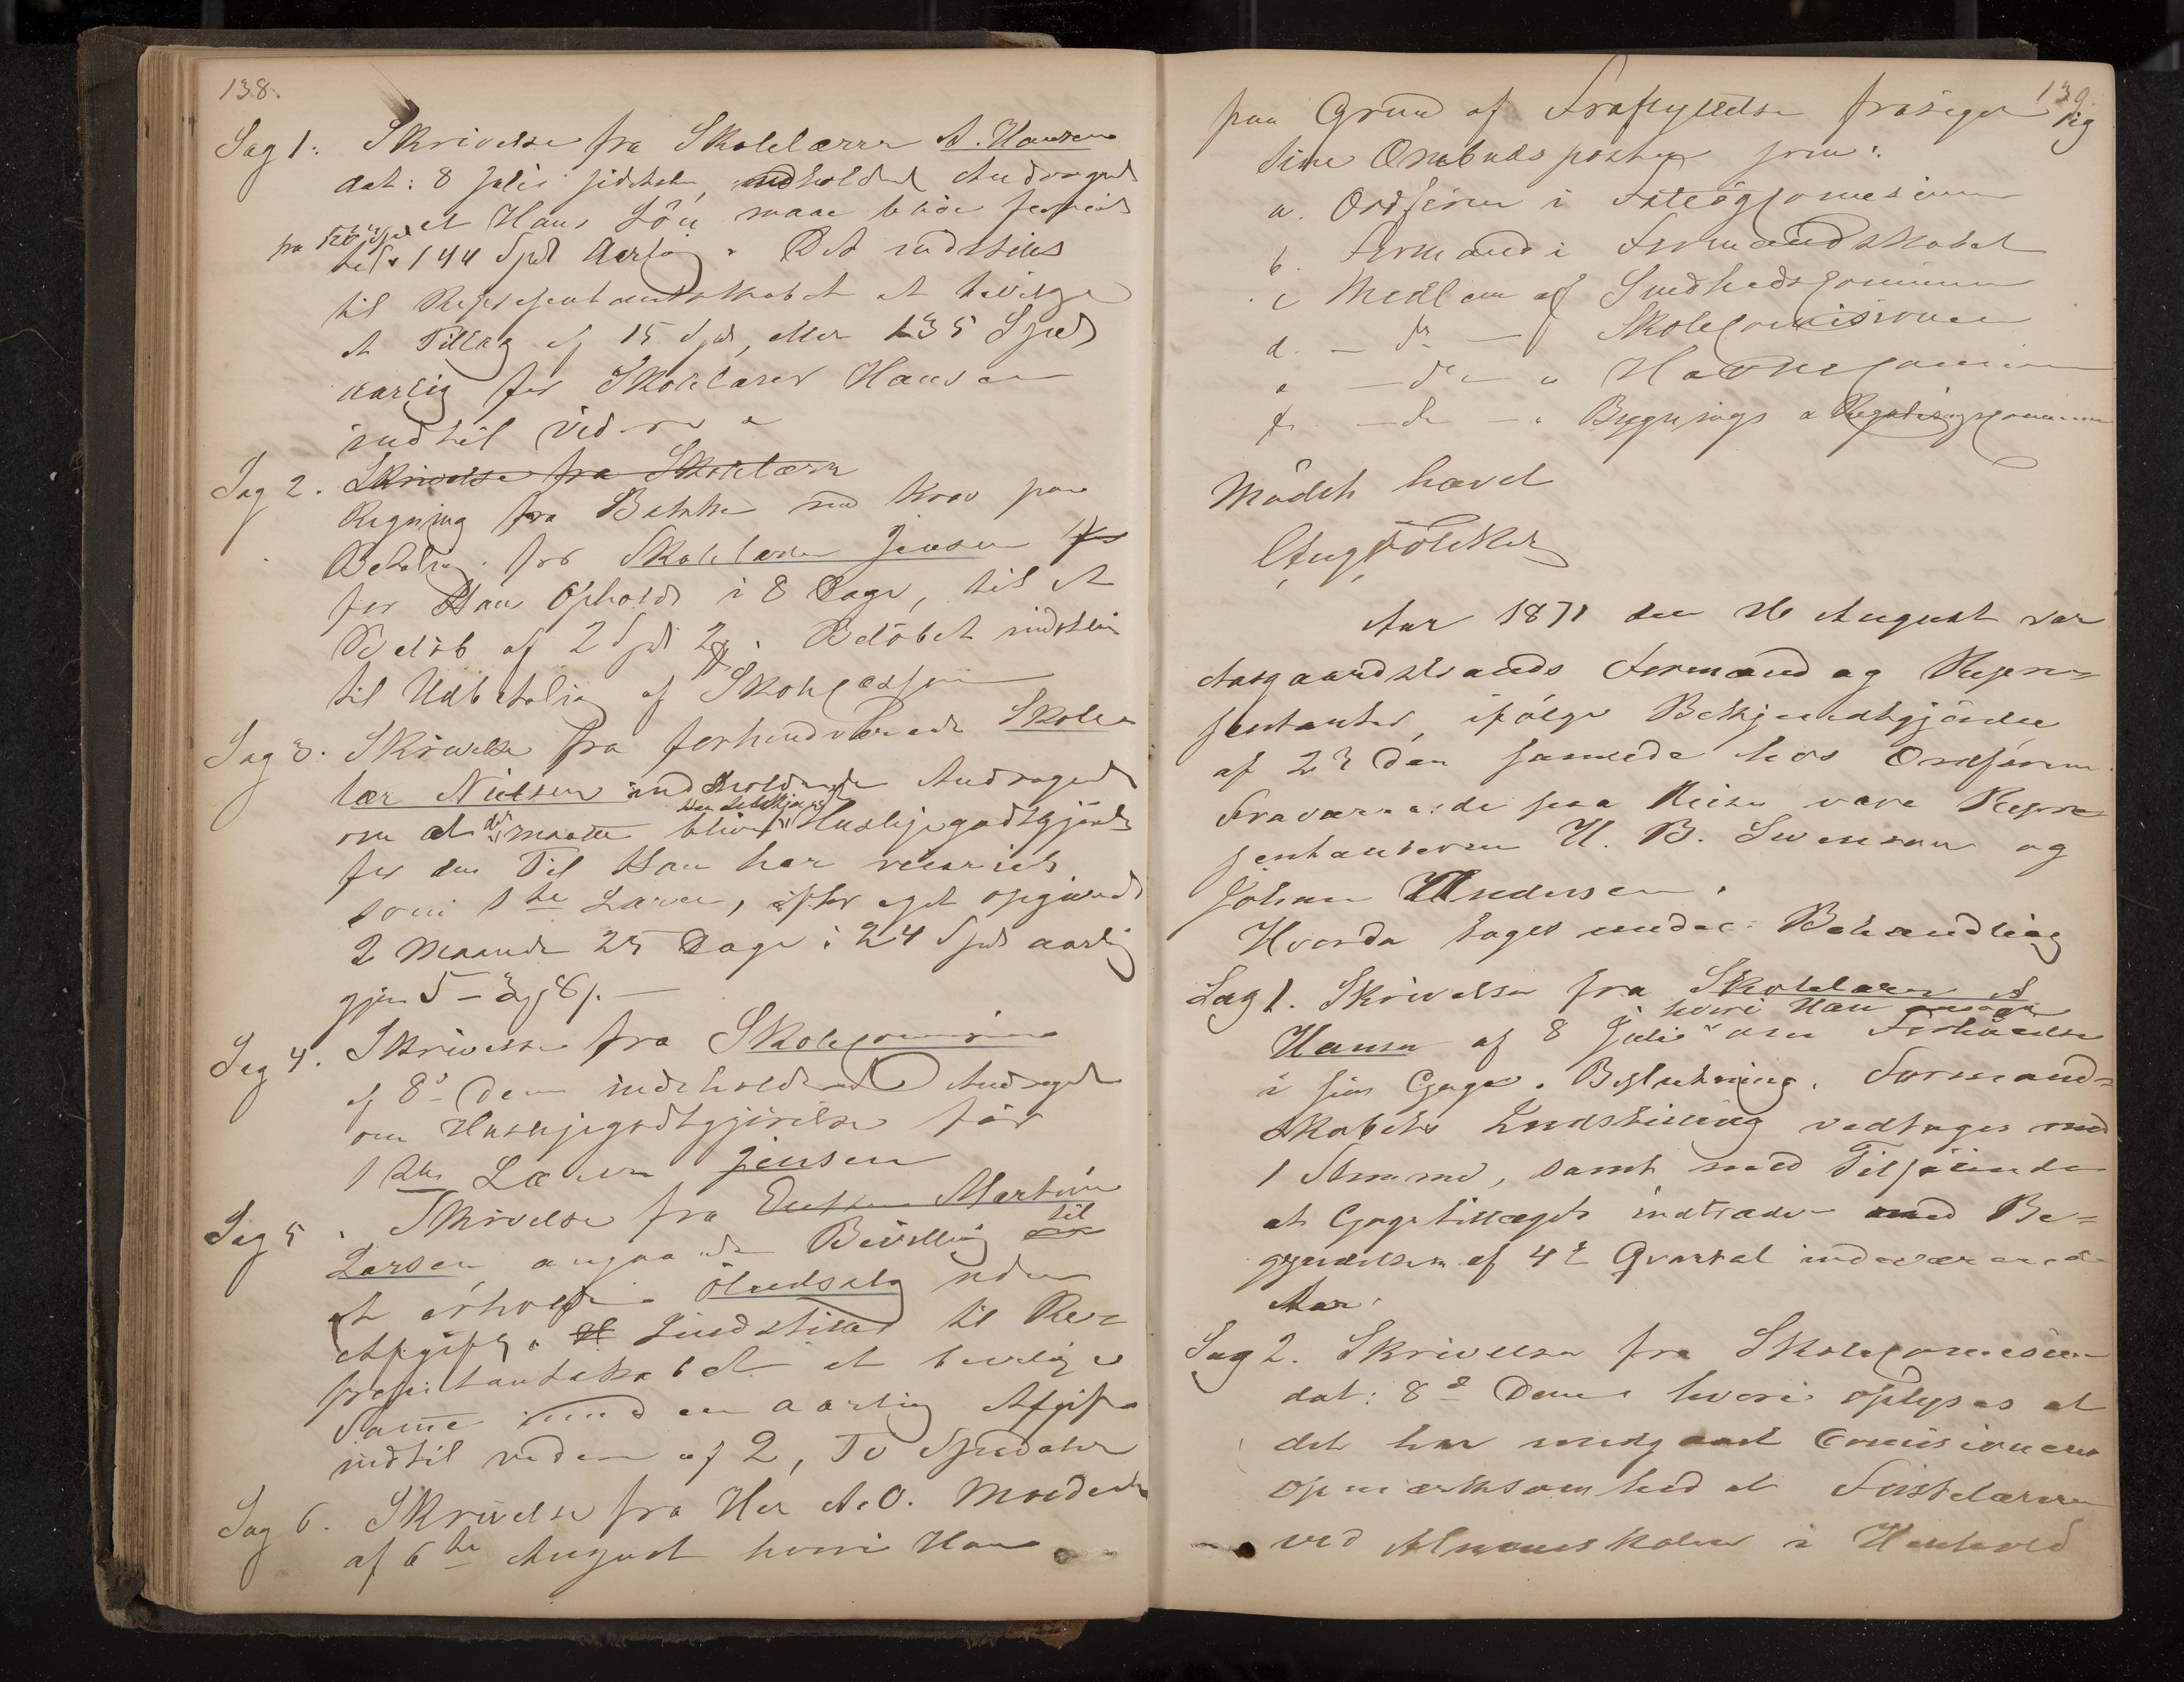 138.
Sag 1. Skrivelse fra Skolelærer A. Hansen
dat: 8 Juli sidstl. indholdende Andragende
at Hans Løn maae blive forhøiet
fra 120 Spd
til 144 Spd Aarlig. Det indstilles
til Repræsentantskabet at bevilge
et Tillæg af 15 Spd, eller 135 Spd
aarlig for Skolelærer Hansen
indtil videre
Sag 2. Skrivelse fra Skolelærer
Regning fra Bakke med Krav paa
Betaling for Skolelærer Jensen for
for Hans Ophold i 8 Dage, til et
Beløb af 2 Spd 2 . Beløbet indstilles
til Udbetaling af Skolecassen
Sag 3. Skrivelse fra forhenværende Skole-
lær Nielsen indeholdende Andragende
om at det maatte blive Huslejegodtgjørelse
for den Tid Han har
som 1ste Lærer, efter eget opgivende
2 Maaneder 25 Dage i 24 Spd aarlig
gjør 5 - 3 8 s. —
Sag 4. Skrivelse fra Skolecommissionen
af 8de Dennes indeholdende Andragende
om Huslejegodtgjørelse for
1ste Lærer Jensen
Sag 5. Skrivelse fra Enken Martine
Larsen angaaende Bevilling til
at erholde Øludsalg uden
Afgift. Indstilles til Re-
præsentantskabet at bevilge
Samme imod en aarlig Afgift
indtil videre af 2, To Speciedaler
Sag 6. Skrivelse fra Her A. O.
af 6te August hvori Han
139.
paa Grund af Fraflyttelse frasiger sig
sine Ombudsposter som:
a. Ordfører i Fattigcommisionen
b. Formand i Formandskabet
c Medlem af Sundhedscommisionen
d. — do — Skolecommissionen
e — do — " Havnecommisionen
f. — do — " Bygnings & Reguleringscommisionen
Mødet hævet
Aar 1871 den 26 August var
Aasgaardstrands Formænd og Repræ-
sentanter, ifølge Bekjendtgjørelse
af 23 den samlede hos Ordføreren
Fraværende paa Reise vare Repræ-
sentanterne H. B. Svenson og
Johan Andersen.
Hvorda toges under Behandling
Sag 1. Skrivelse fra Skolelærer A
hvori Han
Hansen af 8 Julie om Forhøielse
i sin Gage. Beslutning. Formand-
skabets Indstilling vedtages med
1 Stemme, samt med Tilføiende
at Gagetillæget indtræder med Be-
gyndelsen af 4de Qvartal indeværende
Aar.
Sag 2. Skrivelse fra Skolecommisionen
dat: 8de Dennes hvori oplyses at
det har undgaaet Comisionens
opmærksomhed at Førstelæreren
ved Almueskolen i Henhold